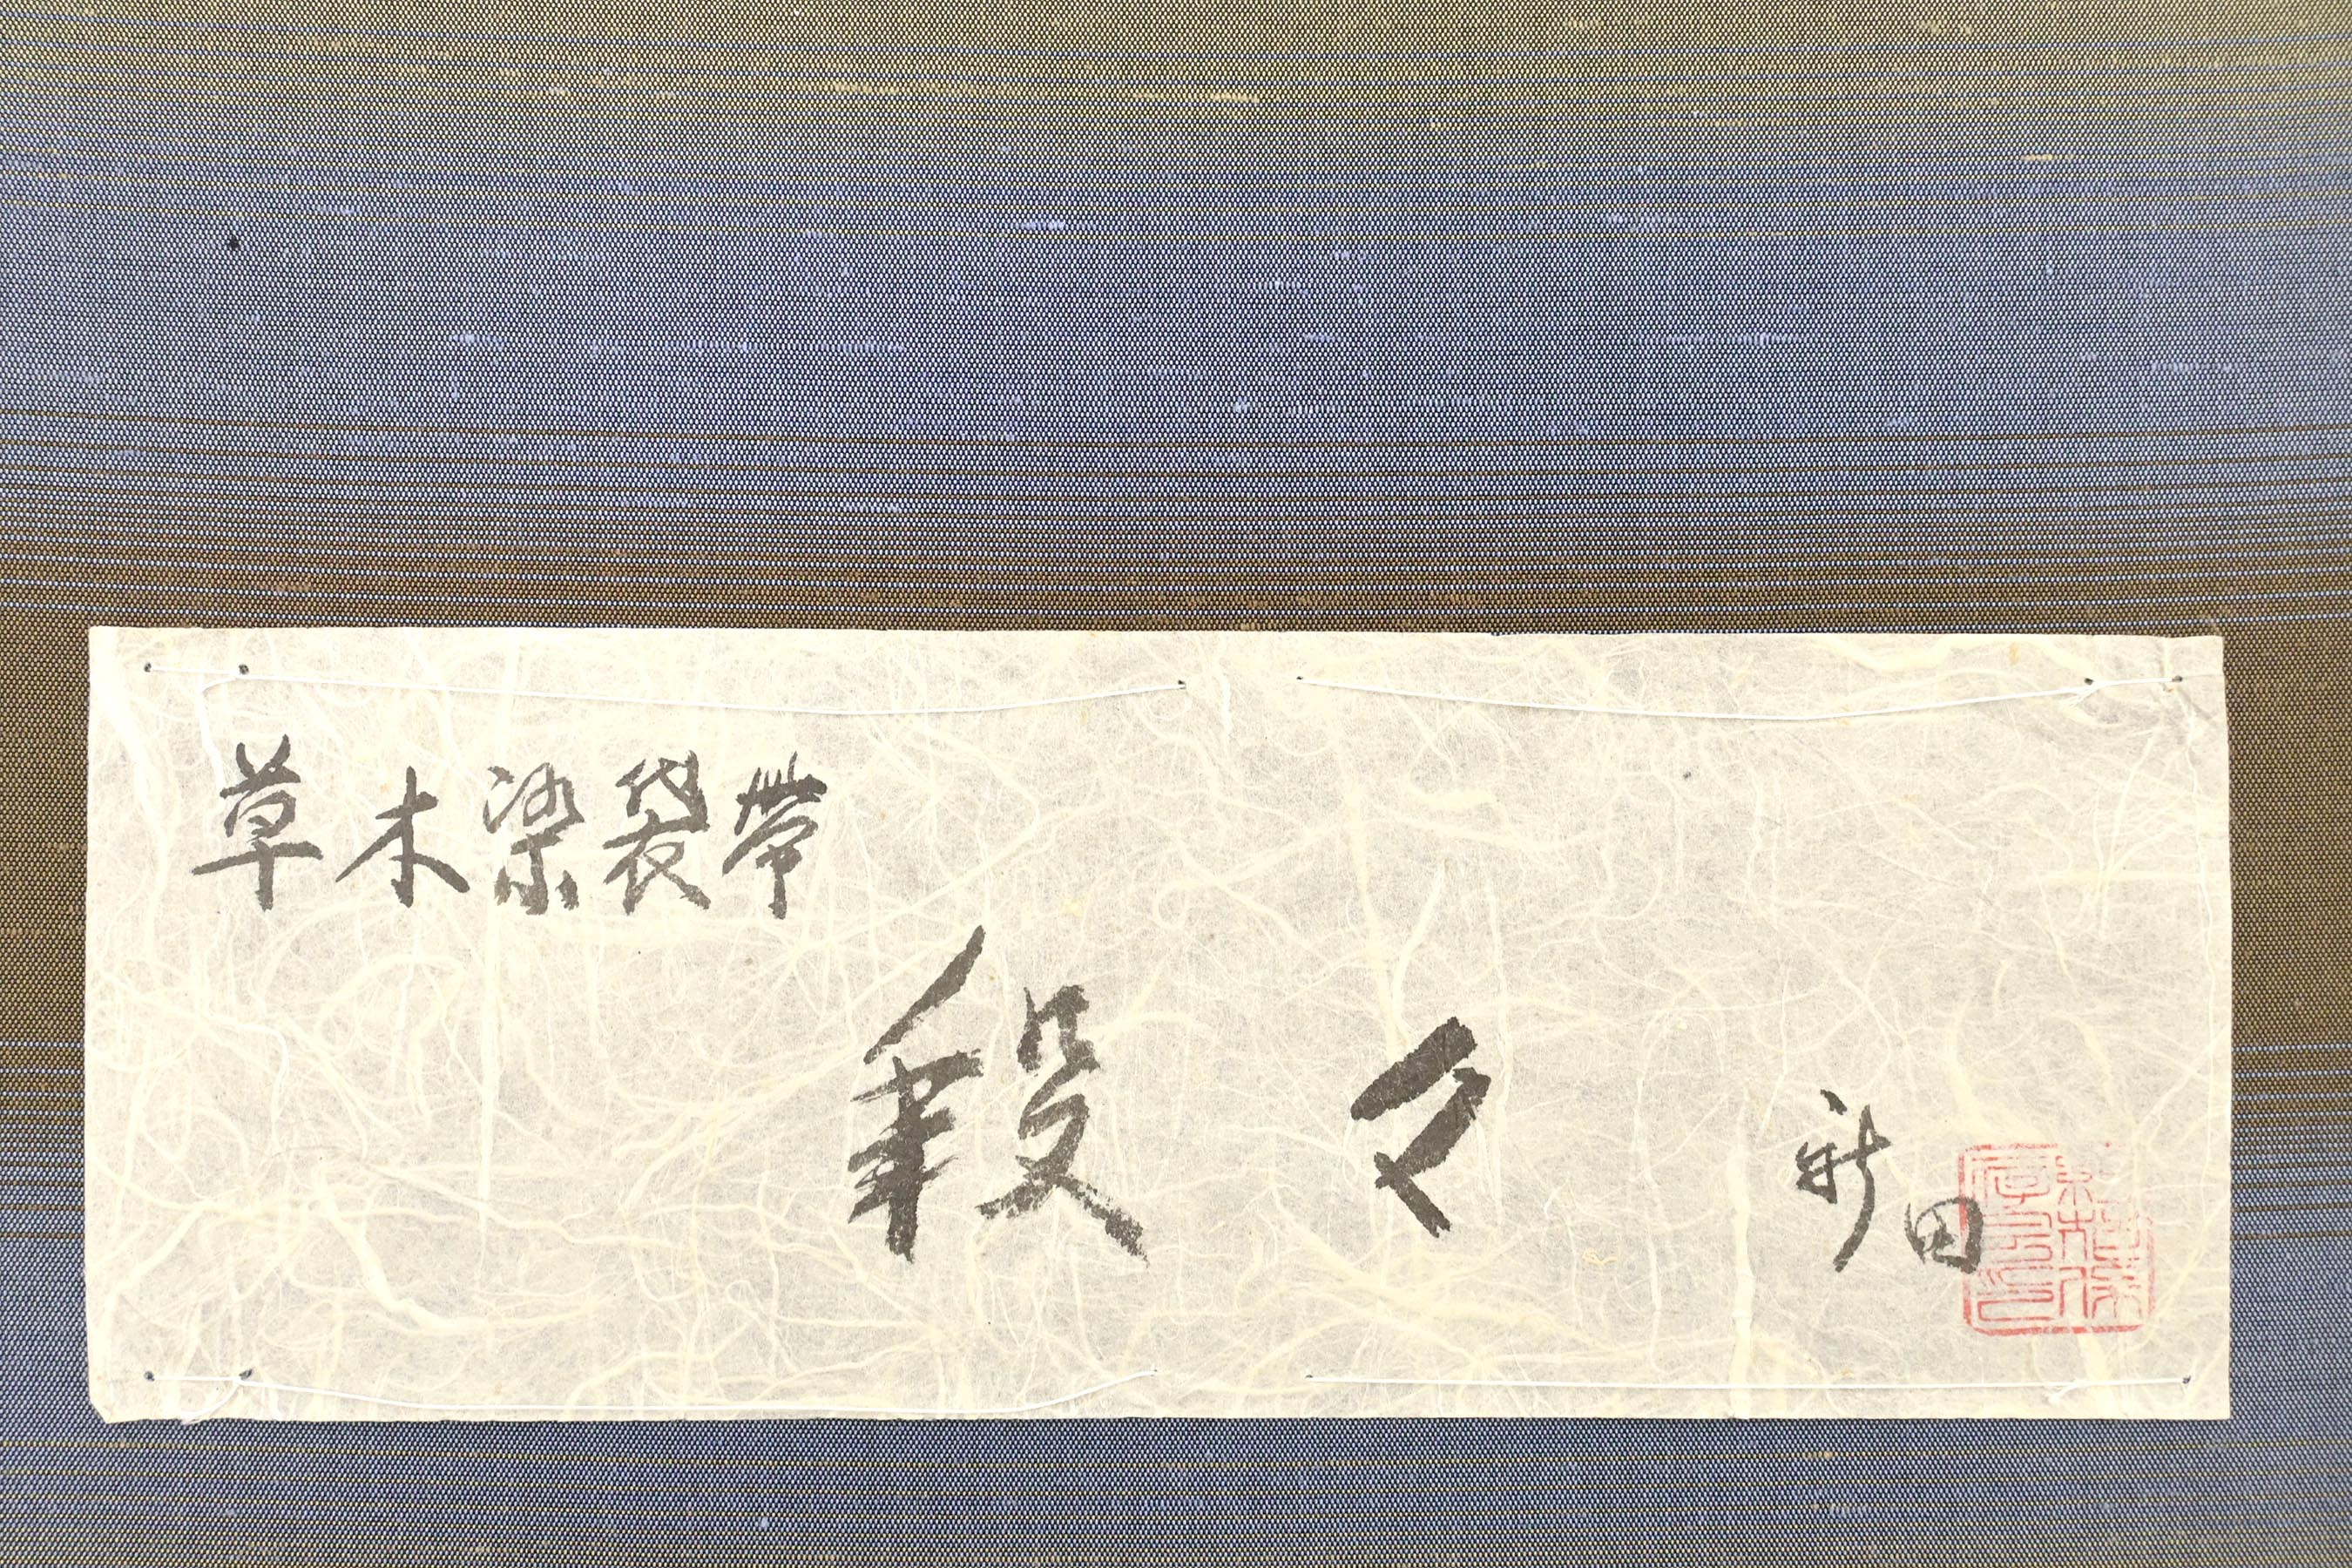 草木染袋帯
段々
新田